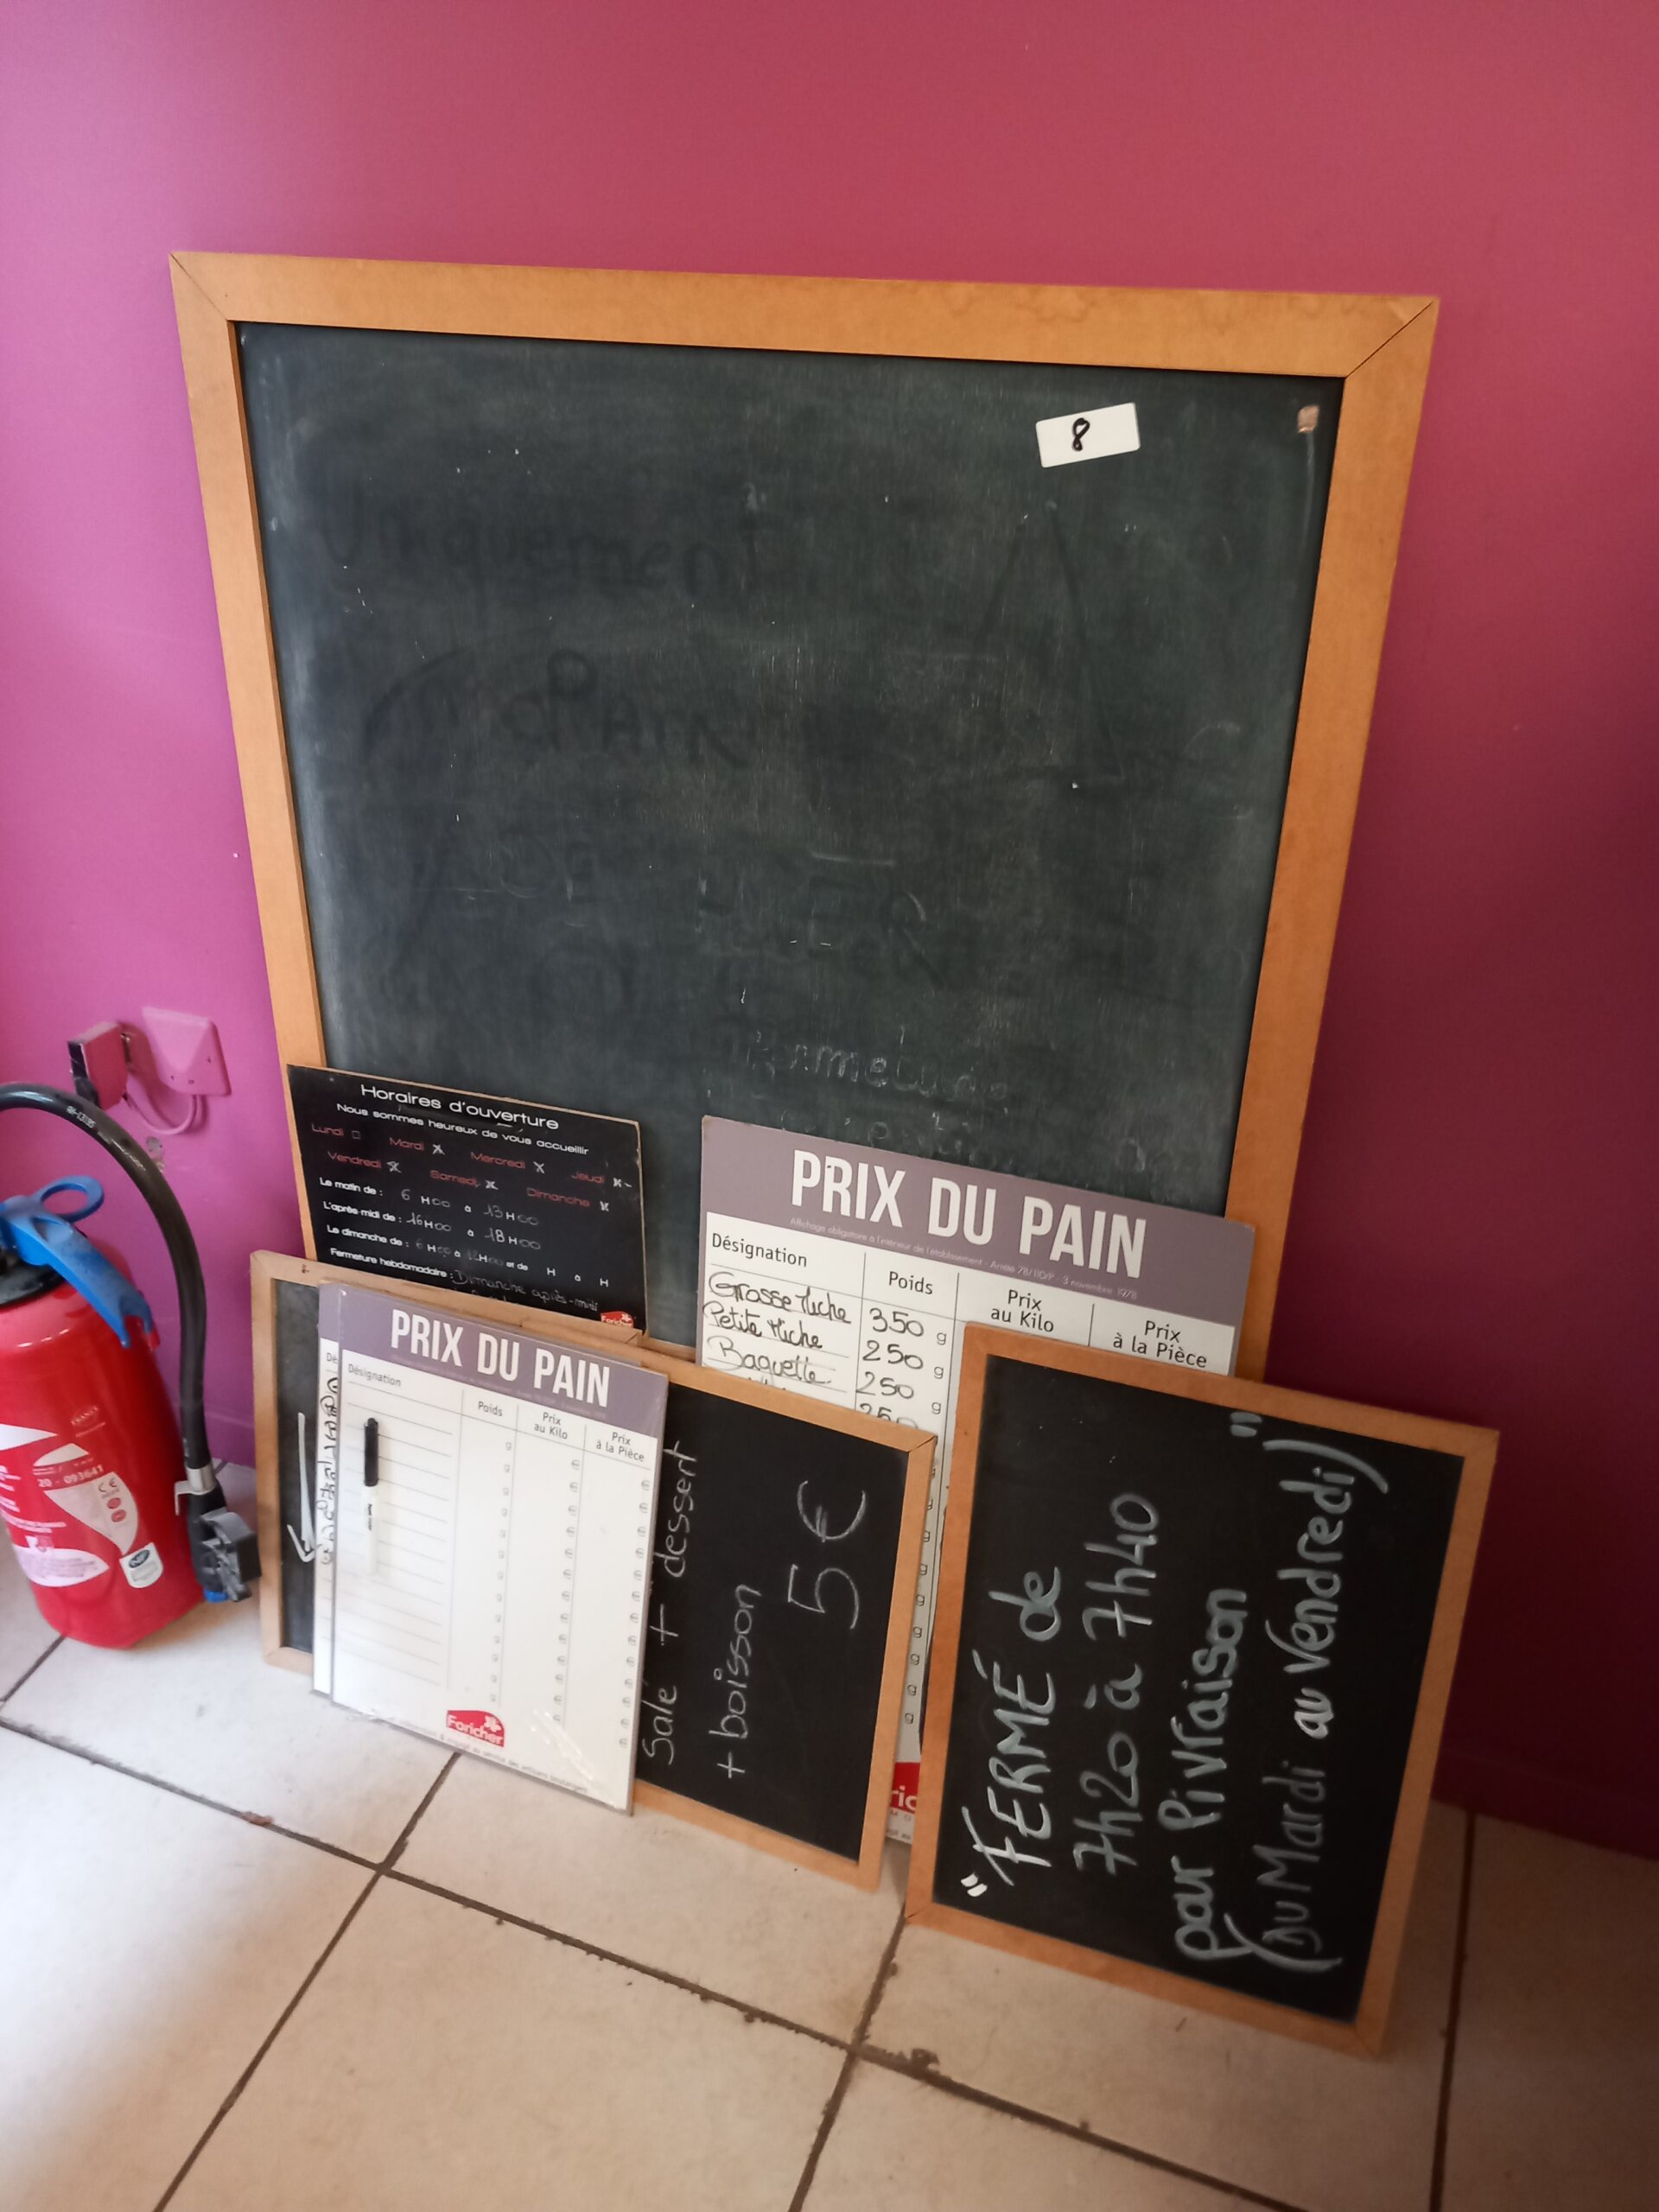 8
Uniquement
PAIN
Fermeture
Horaires d'ouverture
Nous sommes heureux de vous accueillir
Lundi □ Mardi x Mercredi x Jeudi x
Vendredi x Samedi x Dimanche x
Le matin de : 6 H00 à 13H00
L'après-midi de : 16H00 à 18H00
Le dimanche de : 6H00 à H00 et de H à H
Fermeture hebdomadaire : Dimanche après-midi
Foricher
PRIX DU PAIN
Affichage obligatoire à l'intérieur de l'établissement - Arrêté 78/110/P - 3 novembre 1978
Désignation Poids Prix au Kilo Prix à la Pièce
Grosse Miche 350 g
Petite Miche 250 g
Baguette 250 g
250
PRIX DU PAIN
Désignation Poids Prix au Kilo Prix à la Pièce
Foricher
Salé + dessert
+ boisson
5€
"FERMÉ de
7h20 à 7h40
par Pivraison
(Du Mardi au Vendredi)"
20 - 093641
CE